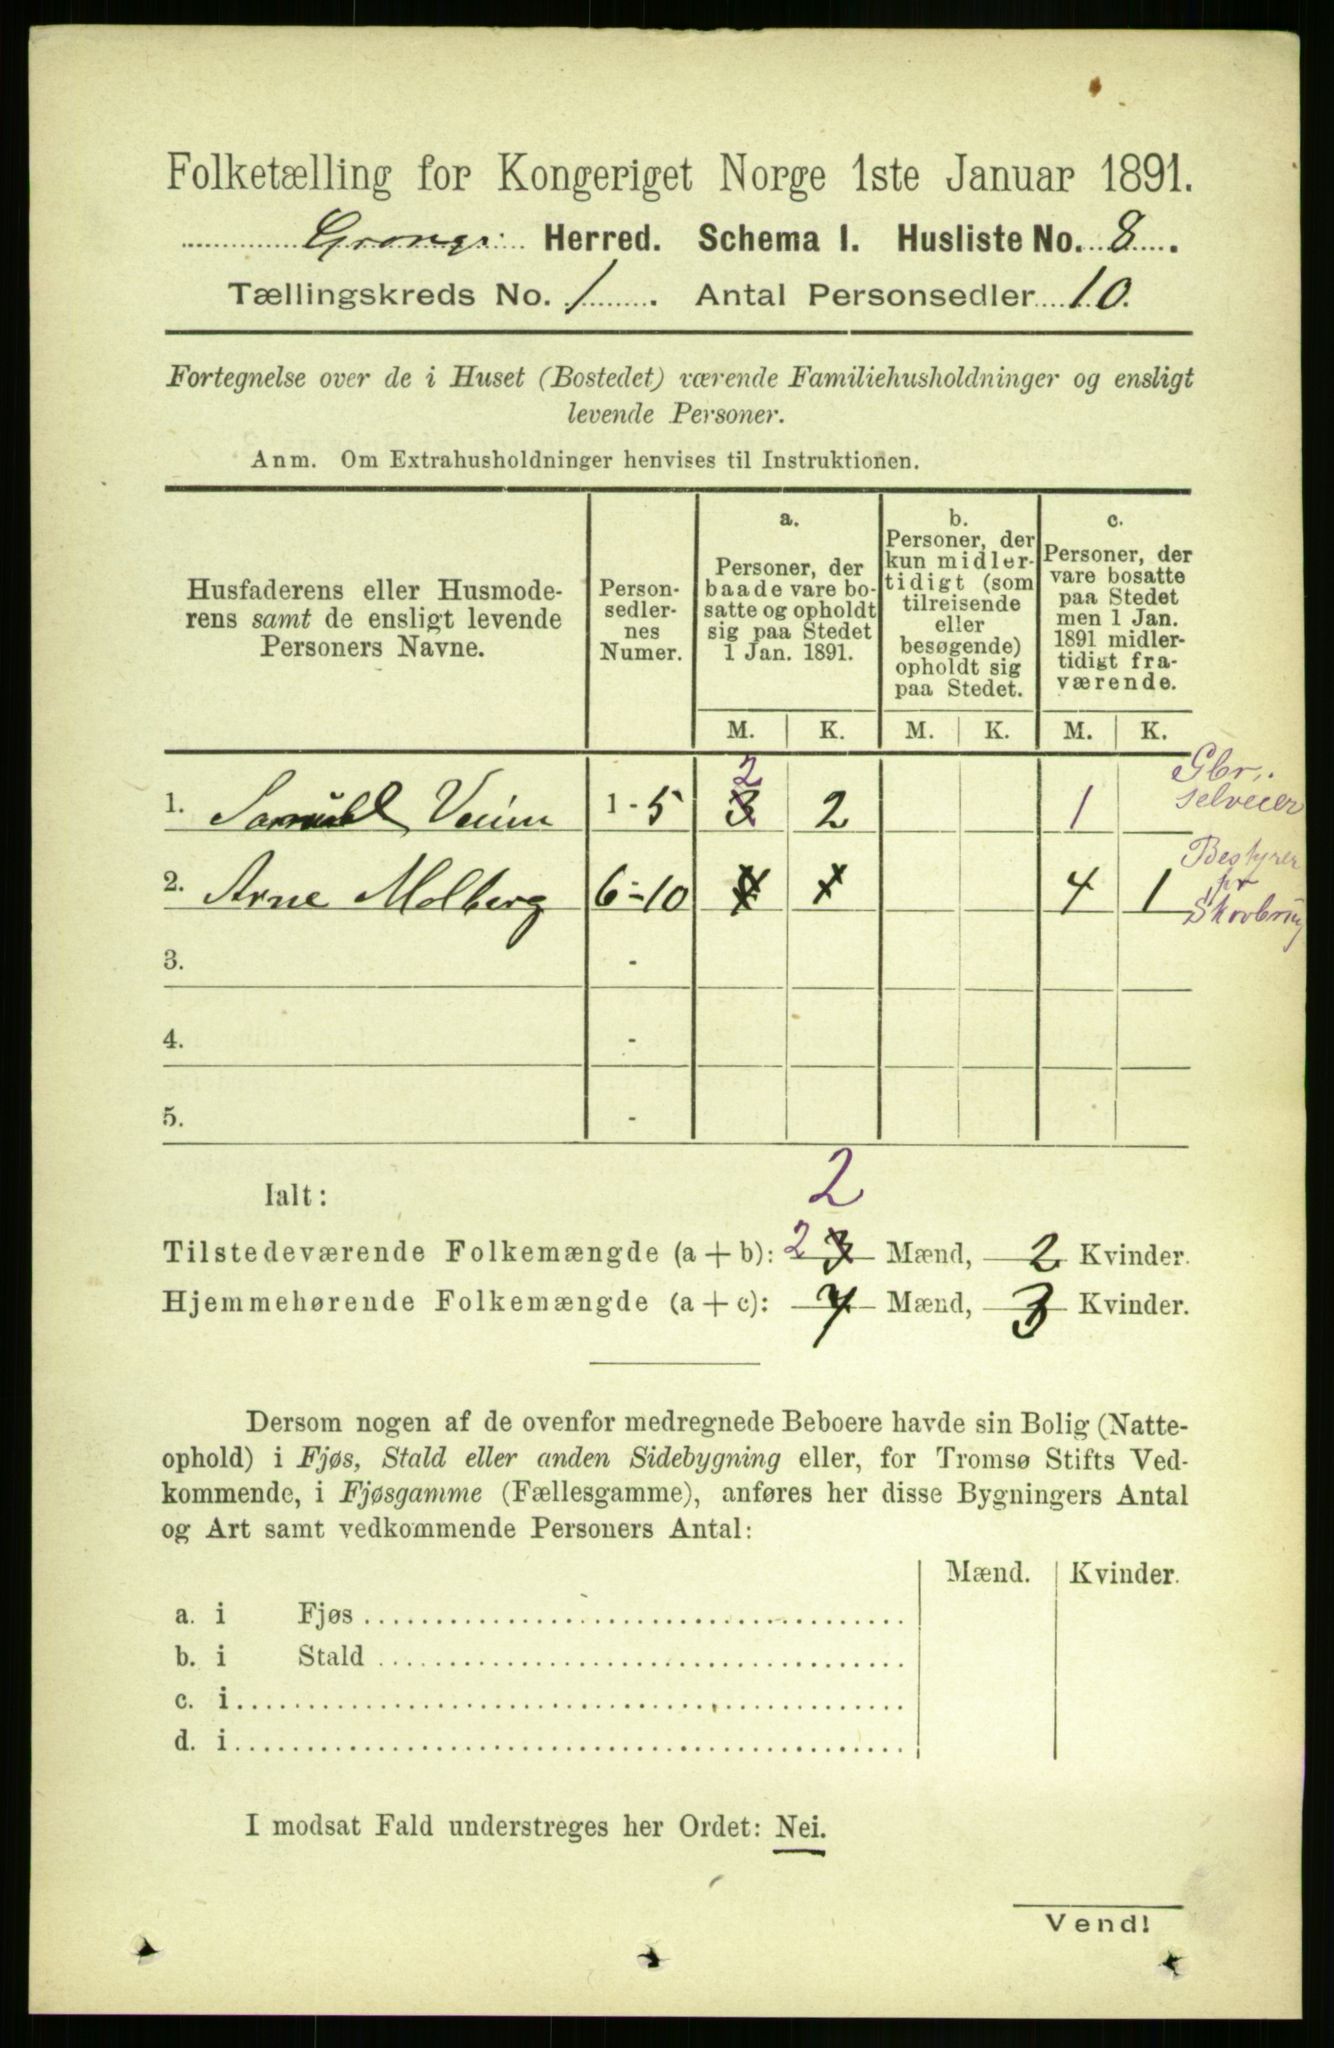 Folketælling for Kongeriget Norge 1ste Januar 1891.
Herred. Schema I. Husliste No. 8.
Tællingskreds No. 1. Antal Personsedler 10.
Fortegnelse over de i Huset (Bostedet) værende Familiehusholdninger og ensligt
levende Personer.
Anm. Om Extrahusholdninger henvises til Instruktionen.
Husfaderens eller Husmode-
rens samt de ensligt levende
Personers Navne.
Person-
sedler-
nes
Numer.
a.
Personer, der
baade vare bo-
satte og opholdt
sig paa Stedet
1 Jan. 1891.
b.
Personer, der
kun midler-
tidigt (som
tilreisende
eller
besøgende)
opholdt sig
paa Stedet.
c.
Personer, der
vare bosatte
paa Stedet
men 1 Jan.
1891 midler-
tidigt fra-
værende.
M. K. M. K. M. K.
1. Veium 1-5 2 3 2 1 Gbr., selveier
2. Arne Molberg 6-10 4 1 4 1 Bestyrer pr
3. -
4. -
5. -
2
Ialt:
Tilstedeværende Folkemængde (a + b): 2 3 Mænd, 2 Kvinder.
Hjemmehørende Folkemængde (a + c): 7 Mænd, 3 Kvinder.
Dersom nogen af de ovenfor medregnede Beboere havde sin Bolig (Natte-
ophold) i Fjøs, Stald eller anden Sidebygning eller, for Tromsø Stifts Ved-
kommende, i Fjøsgamme (Fællesgamme), anføres her disse Bygningers Antal
og Art samt vedkommende Personers Antal:
Mænd. Kvinder.
a. i Fjøs
b. i Stald
c. i
d. i
I modsat Fald understreges her Ordet: Nei.
Vend!